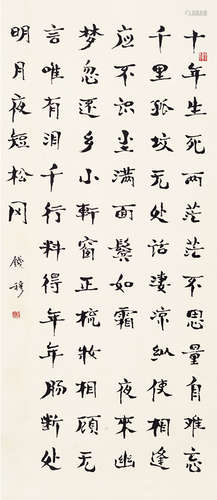 十年生死两茫茫不思量自难忘
千里孤坟无处话凄凉纵使相逢
应不识尘满面鬓如霜夜来幽
梦忽还乡小轩窗正梳妆相顾无
言唯有泪千行料得年年肠断处
明月夜短松冈
钱穆